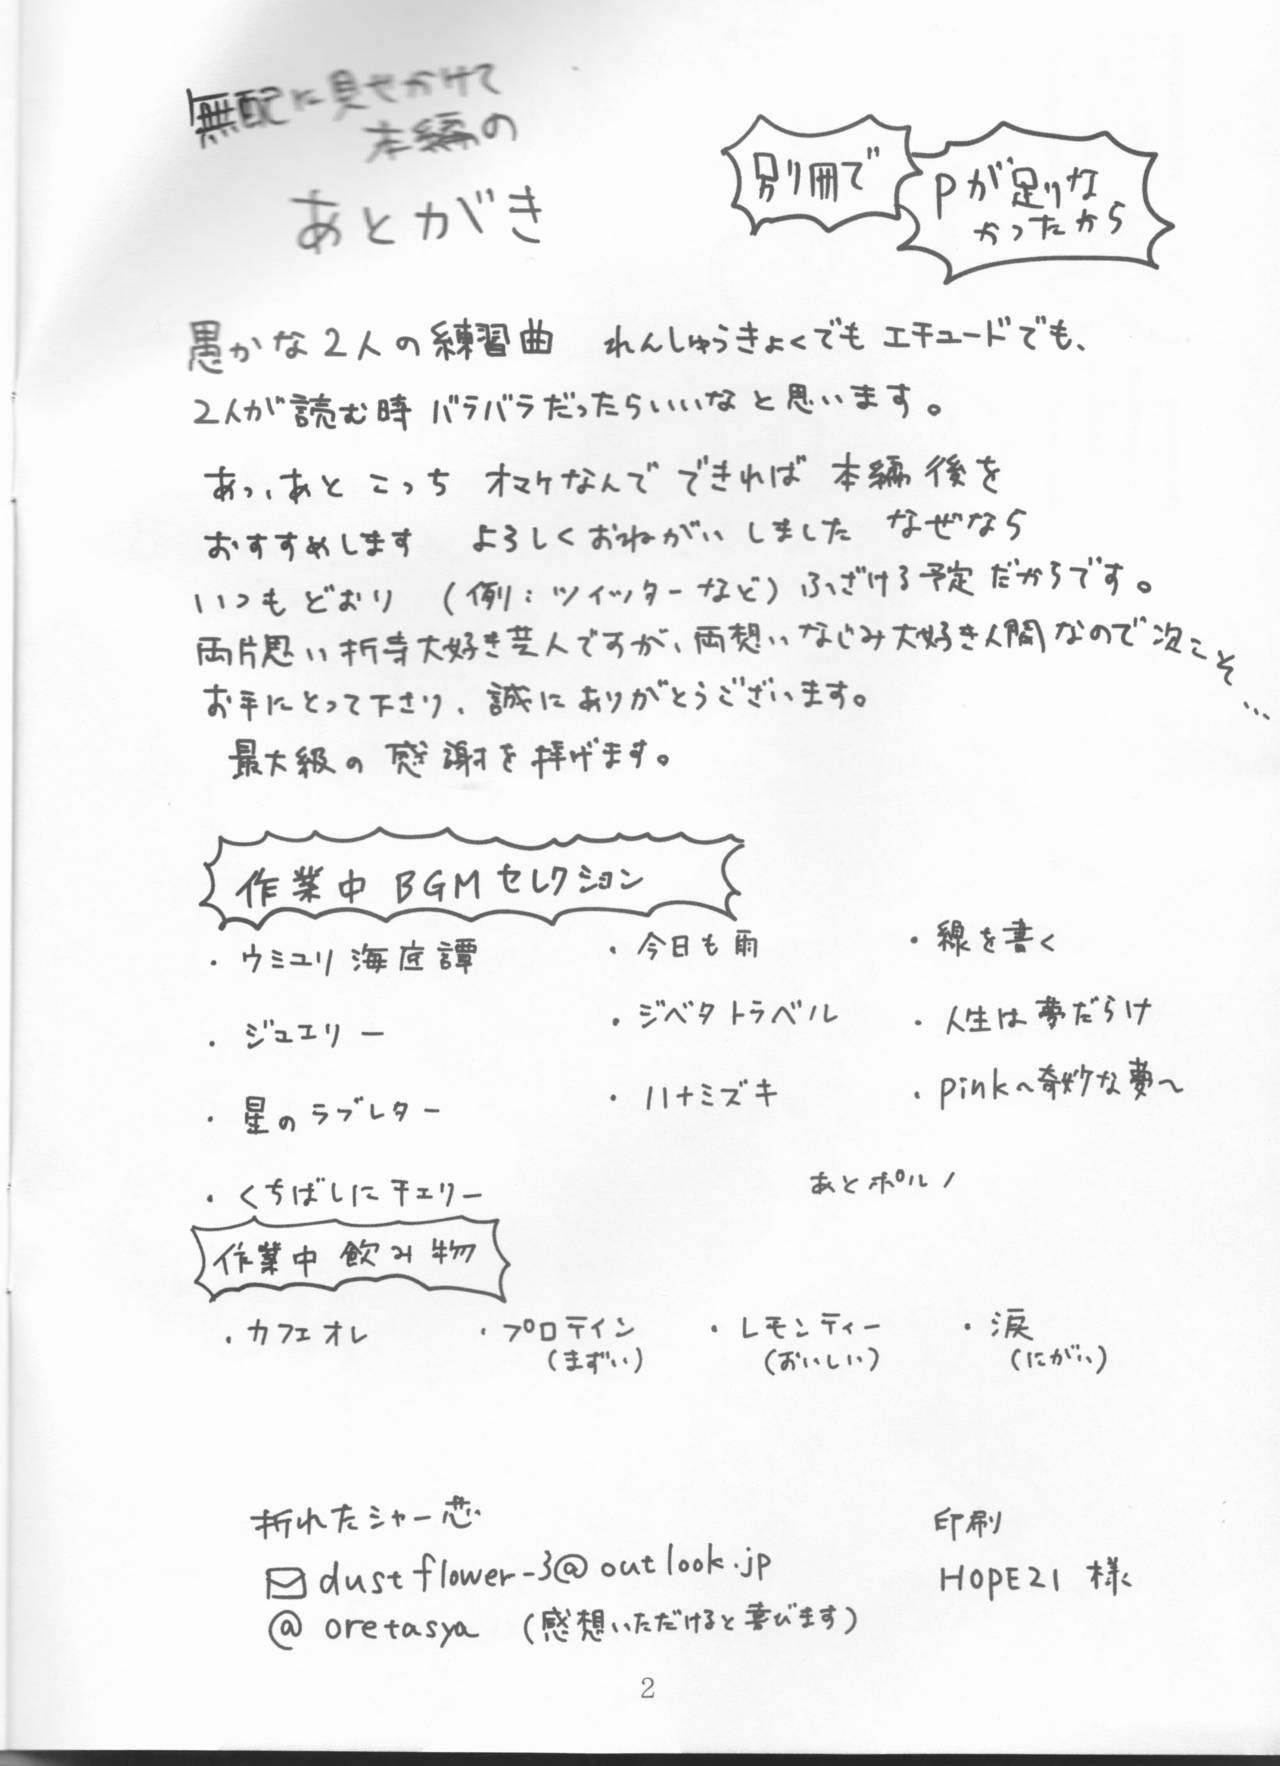 無配に見せかけて
本編の
あとがき
別冊で
Pが足りな
かったから
愚かな2人の練習曲 れんしゅうきょくでも エチュードでも、
2人が読む時 バラバラだったらいいなと思います。
あっ、あと こっち オマケなんで できれば 本編後を
おすすめします よろしくおねがいしました なぜなら
いつもどおり (例:ツイッターなど) ふざける予定だからです。
両片思い折寺大好き芸人ですが、両想いなじみ大好き人間なので次こそ…
お手にとって下さり、誠にありがとうございます。
最大級の感謝を捧げます。
作業中BGMセレクション
・ウミユリ海底譚
・今日も雨
・線を書く
・ジュエリー
・ジベタトラベル
・人生は夢だらけ
・星のラブレター
・ハナミズキ
・pink〜奇妙な夢〜
・くちばしにチェリー
あとポルノ
作業中飲み物
・カフェオレ
・プロテイン
(まずい)
・レモンティー
(おいしい)
・涙
(にがい)
折れたシャー芯
dustflower-3@outlook.jp
@oretasya (感想いただけると喜びます)
印刷
HOPE21 様
2